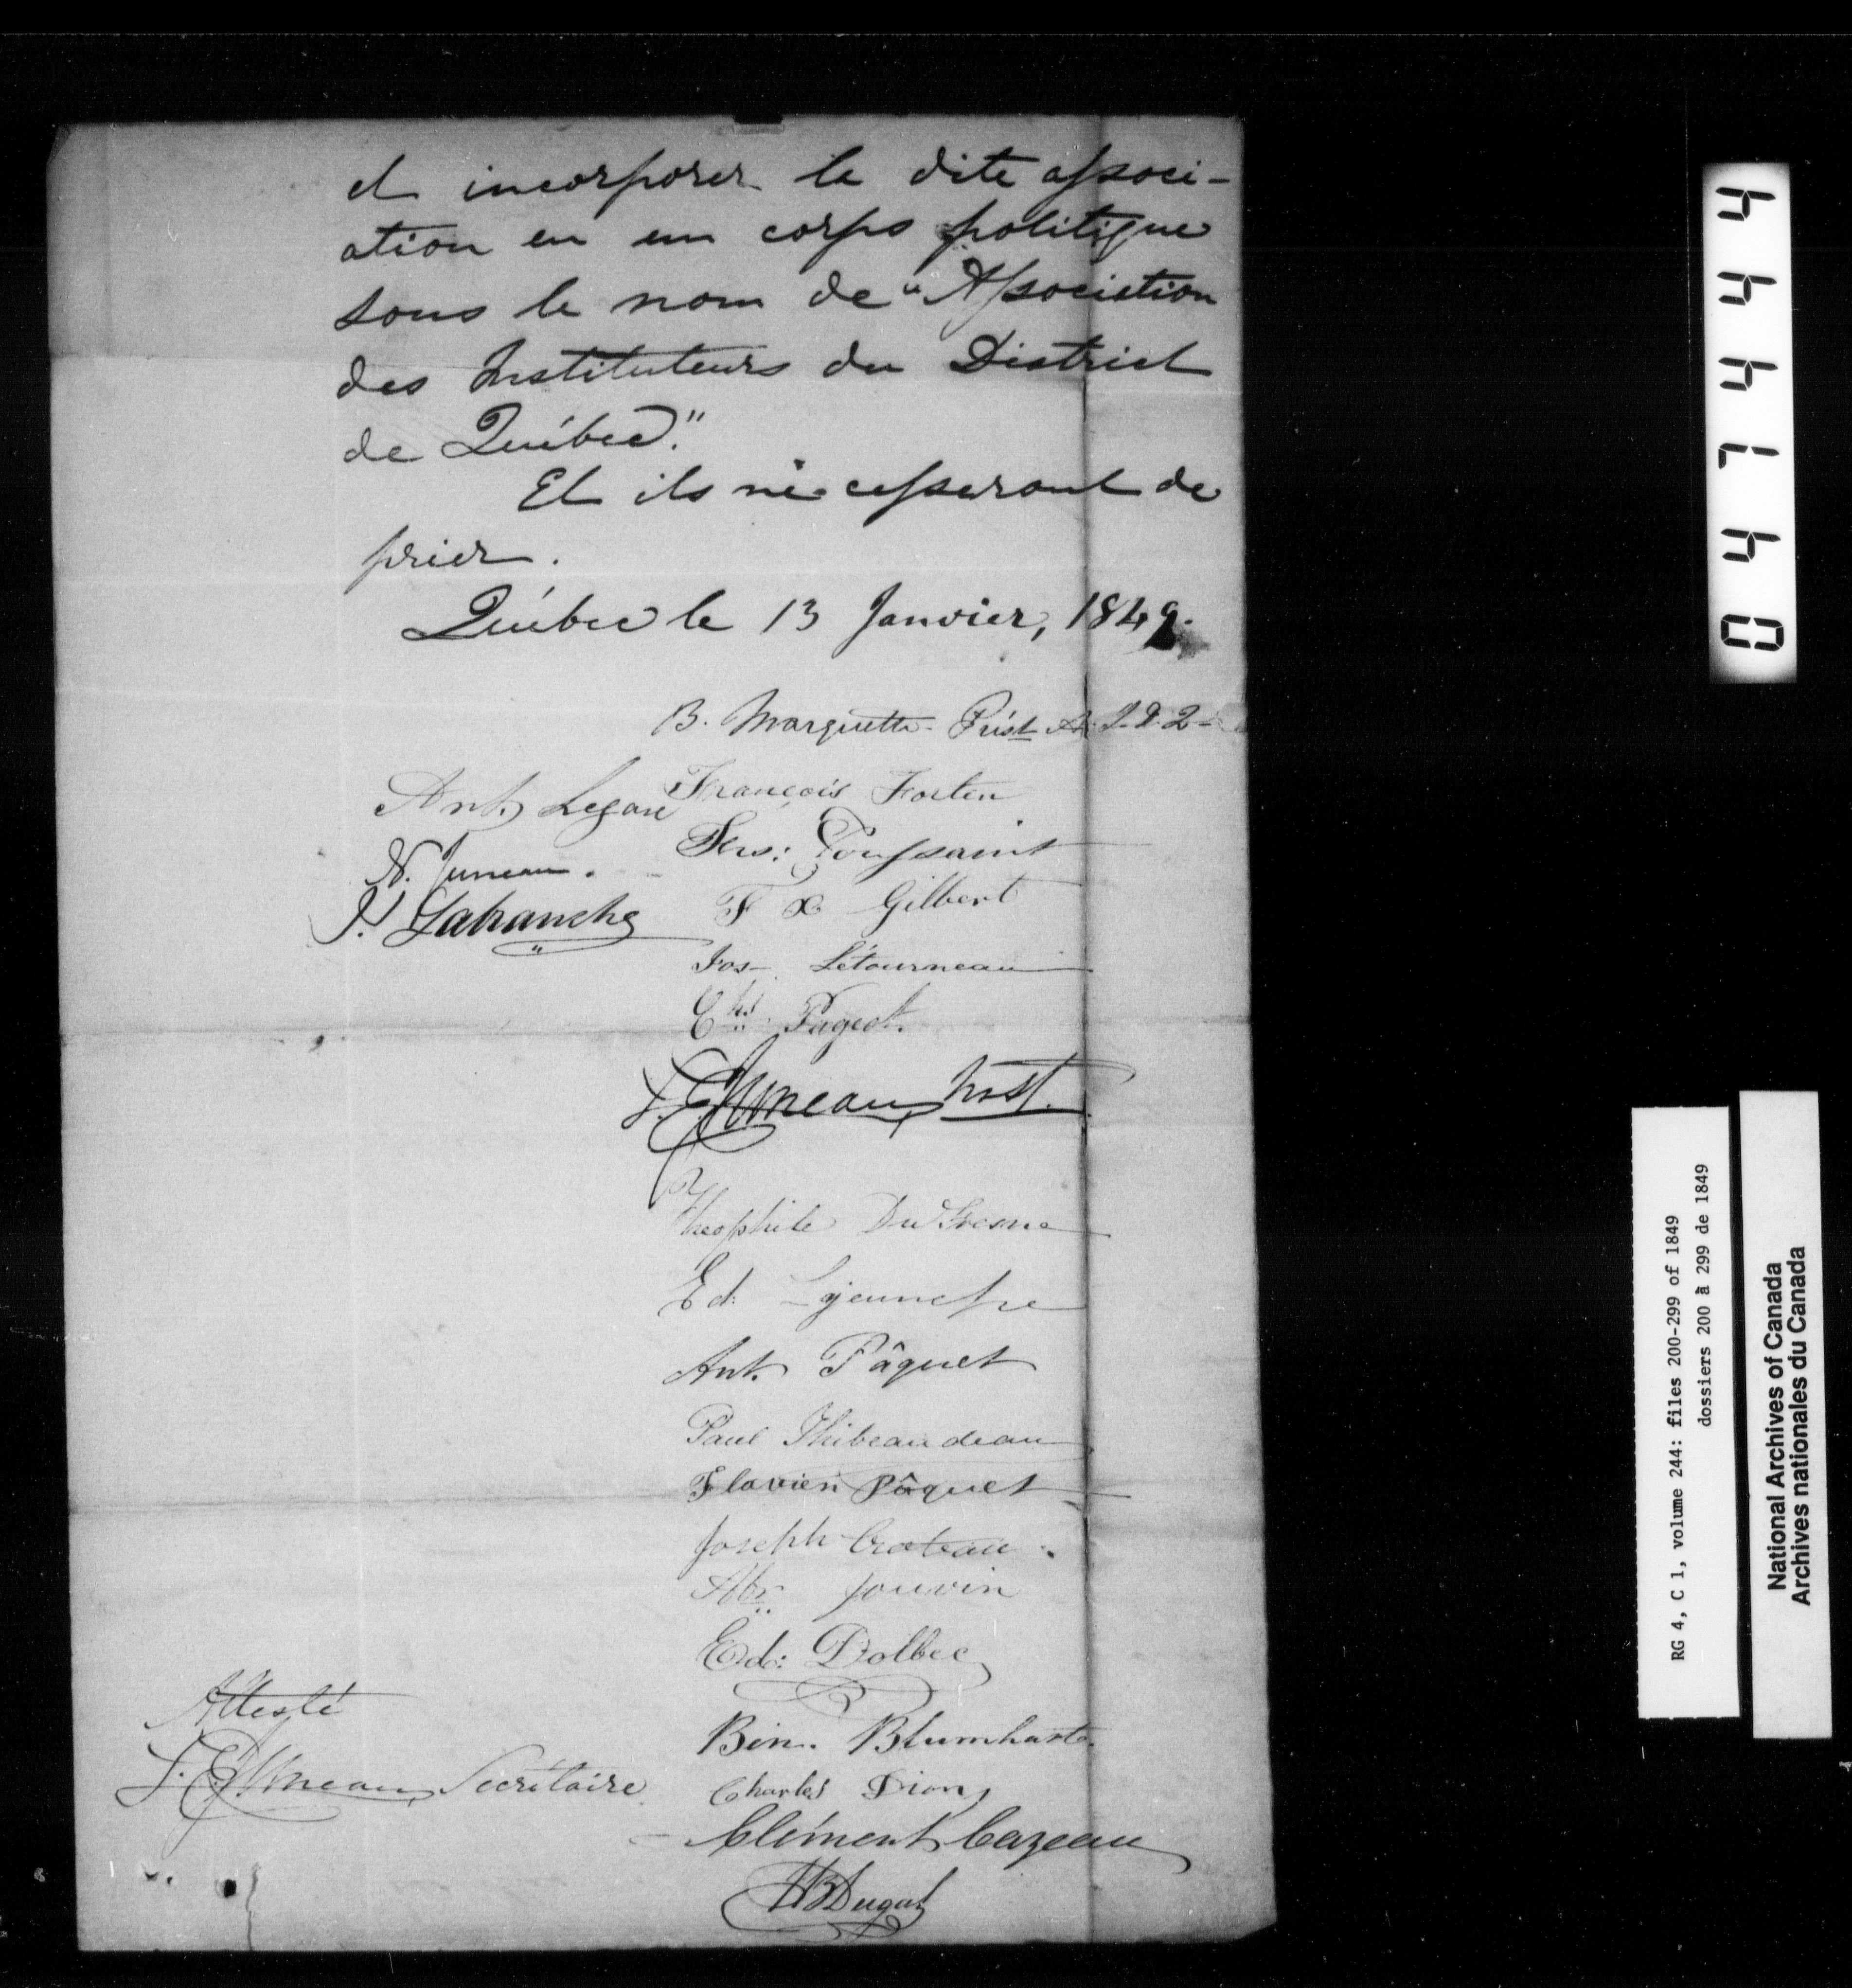 et incorporer la dite associ-
ation en un corps politique
sous le nom de "Association
des Instituteurs du District
de Québec."
Et ils ne cesseront de
prier.
Québec le 13 Janvier, 1849.
B. Marquette - Prést A. I. D. Q.
Ant. Legaré
François Fortin
N. Juneau.
Frs: Toussaint
J. Lafrance
F X Gilbert
Jos Létourneau
Chs Pageot.
F. E. Juneau, Inst.
Théophile DuFresne
Ed: Lajeunesse
Ant. Pâquet
Paul Thibeaudeau
Flavien Pâquet
Joseph Croteau.
Abr Jouvin
Ed: Dolbec
Attesté
F. E. Juneau, Secrétaire
Ben. Blumhart.
Charles Dion
Clément Cazeau
Dugal
044144
RG 4, C 1, volume 244: files 200-299 of 1849
dossiers 200 à 299 de 1849
National Archives of Canada
Archives nationales du Canada